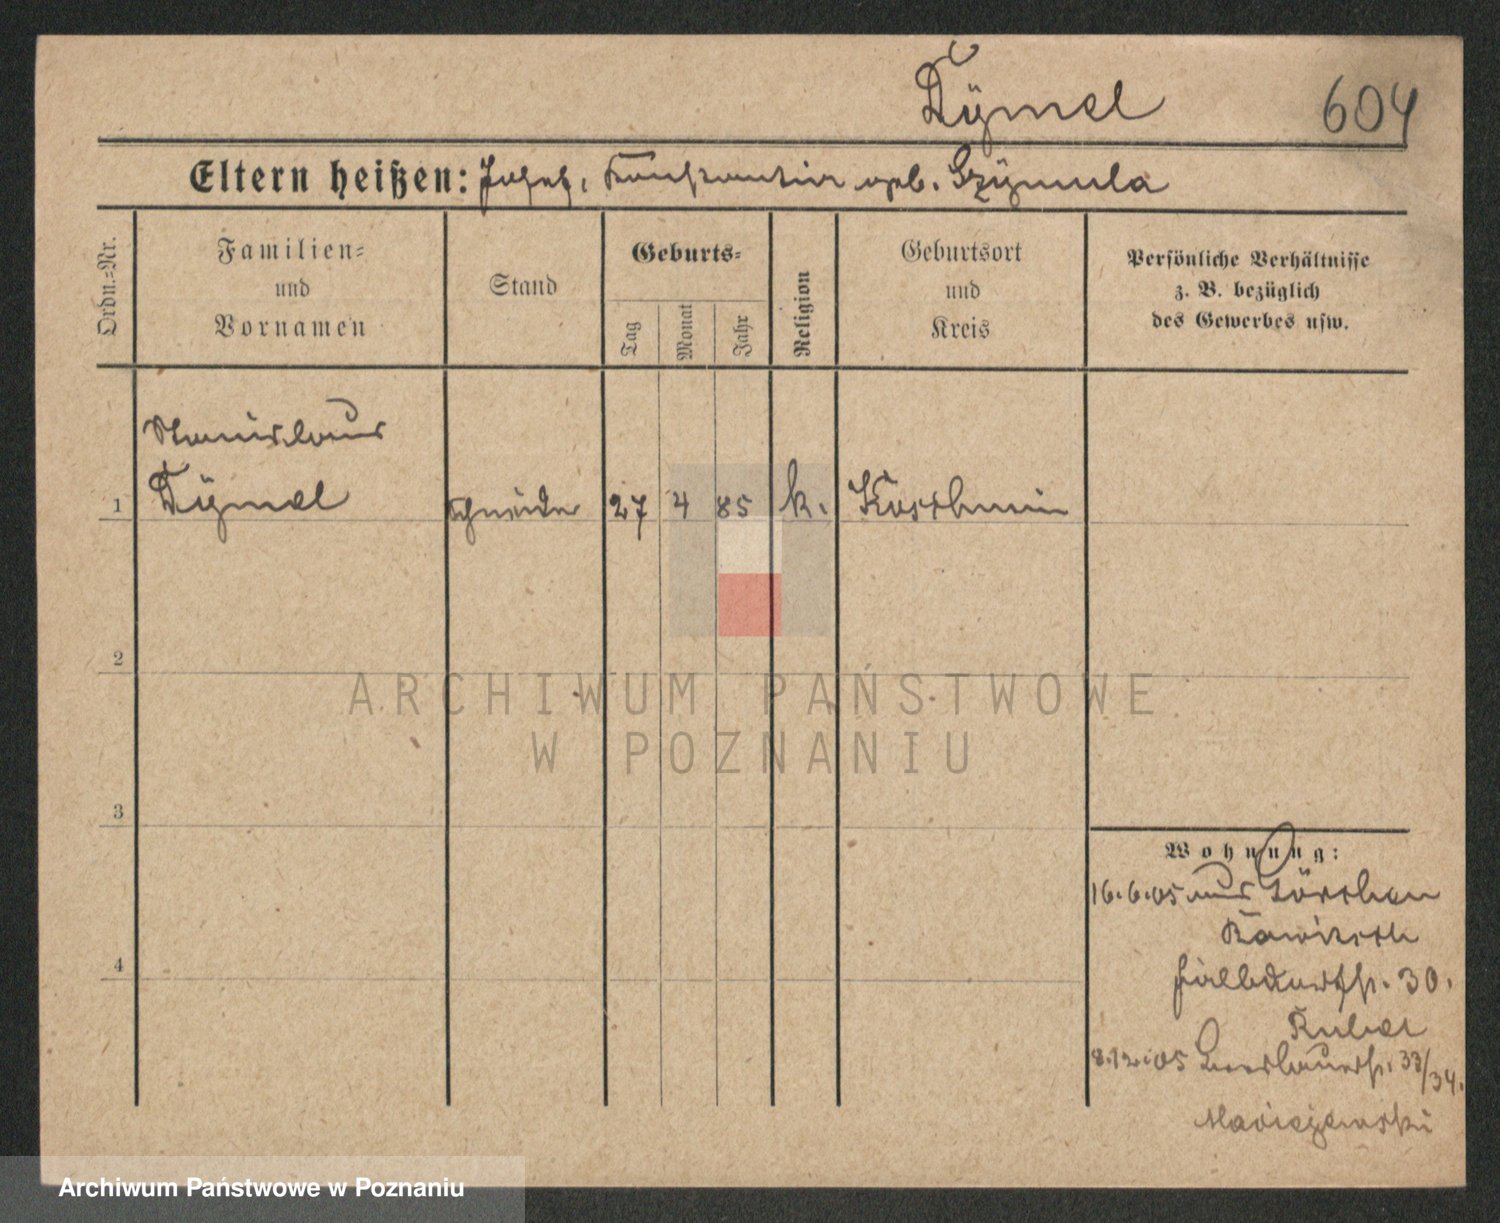 Tÿmal
604
Eltern heißen: Josef, Konstantin geb. Szÿmula
Ordn.=Nr.
Familien=
und
Vornamen
Stand
Geburts=
Tag
Monat
Jahr
Religion
Geburtsort
und
Kreis
Persönliche Verhältnisse
z. B. bezüglich
des Gewerbes usw.
Stanislaus
1 Tÿmal Schneider 27 4 85 k. Koschmin
2
3
4
ARCHIWUM PAŃSTWOWE
W POZNANIU
Wohnung:
16.6.05 aus
Rawitsch
30.
8.12.05 33/34.
Maciejewski
Archiwum Państwowe w Poznaniu